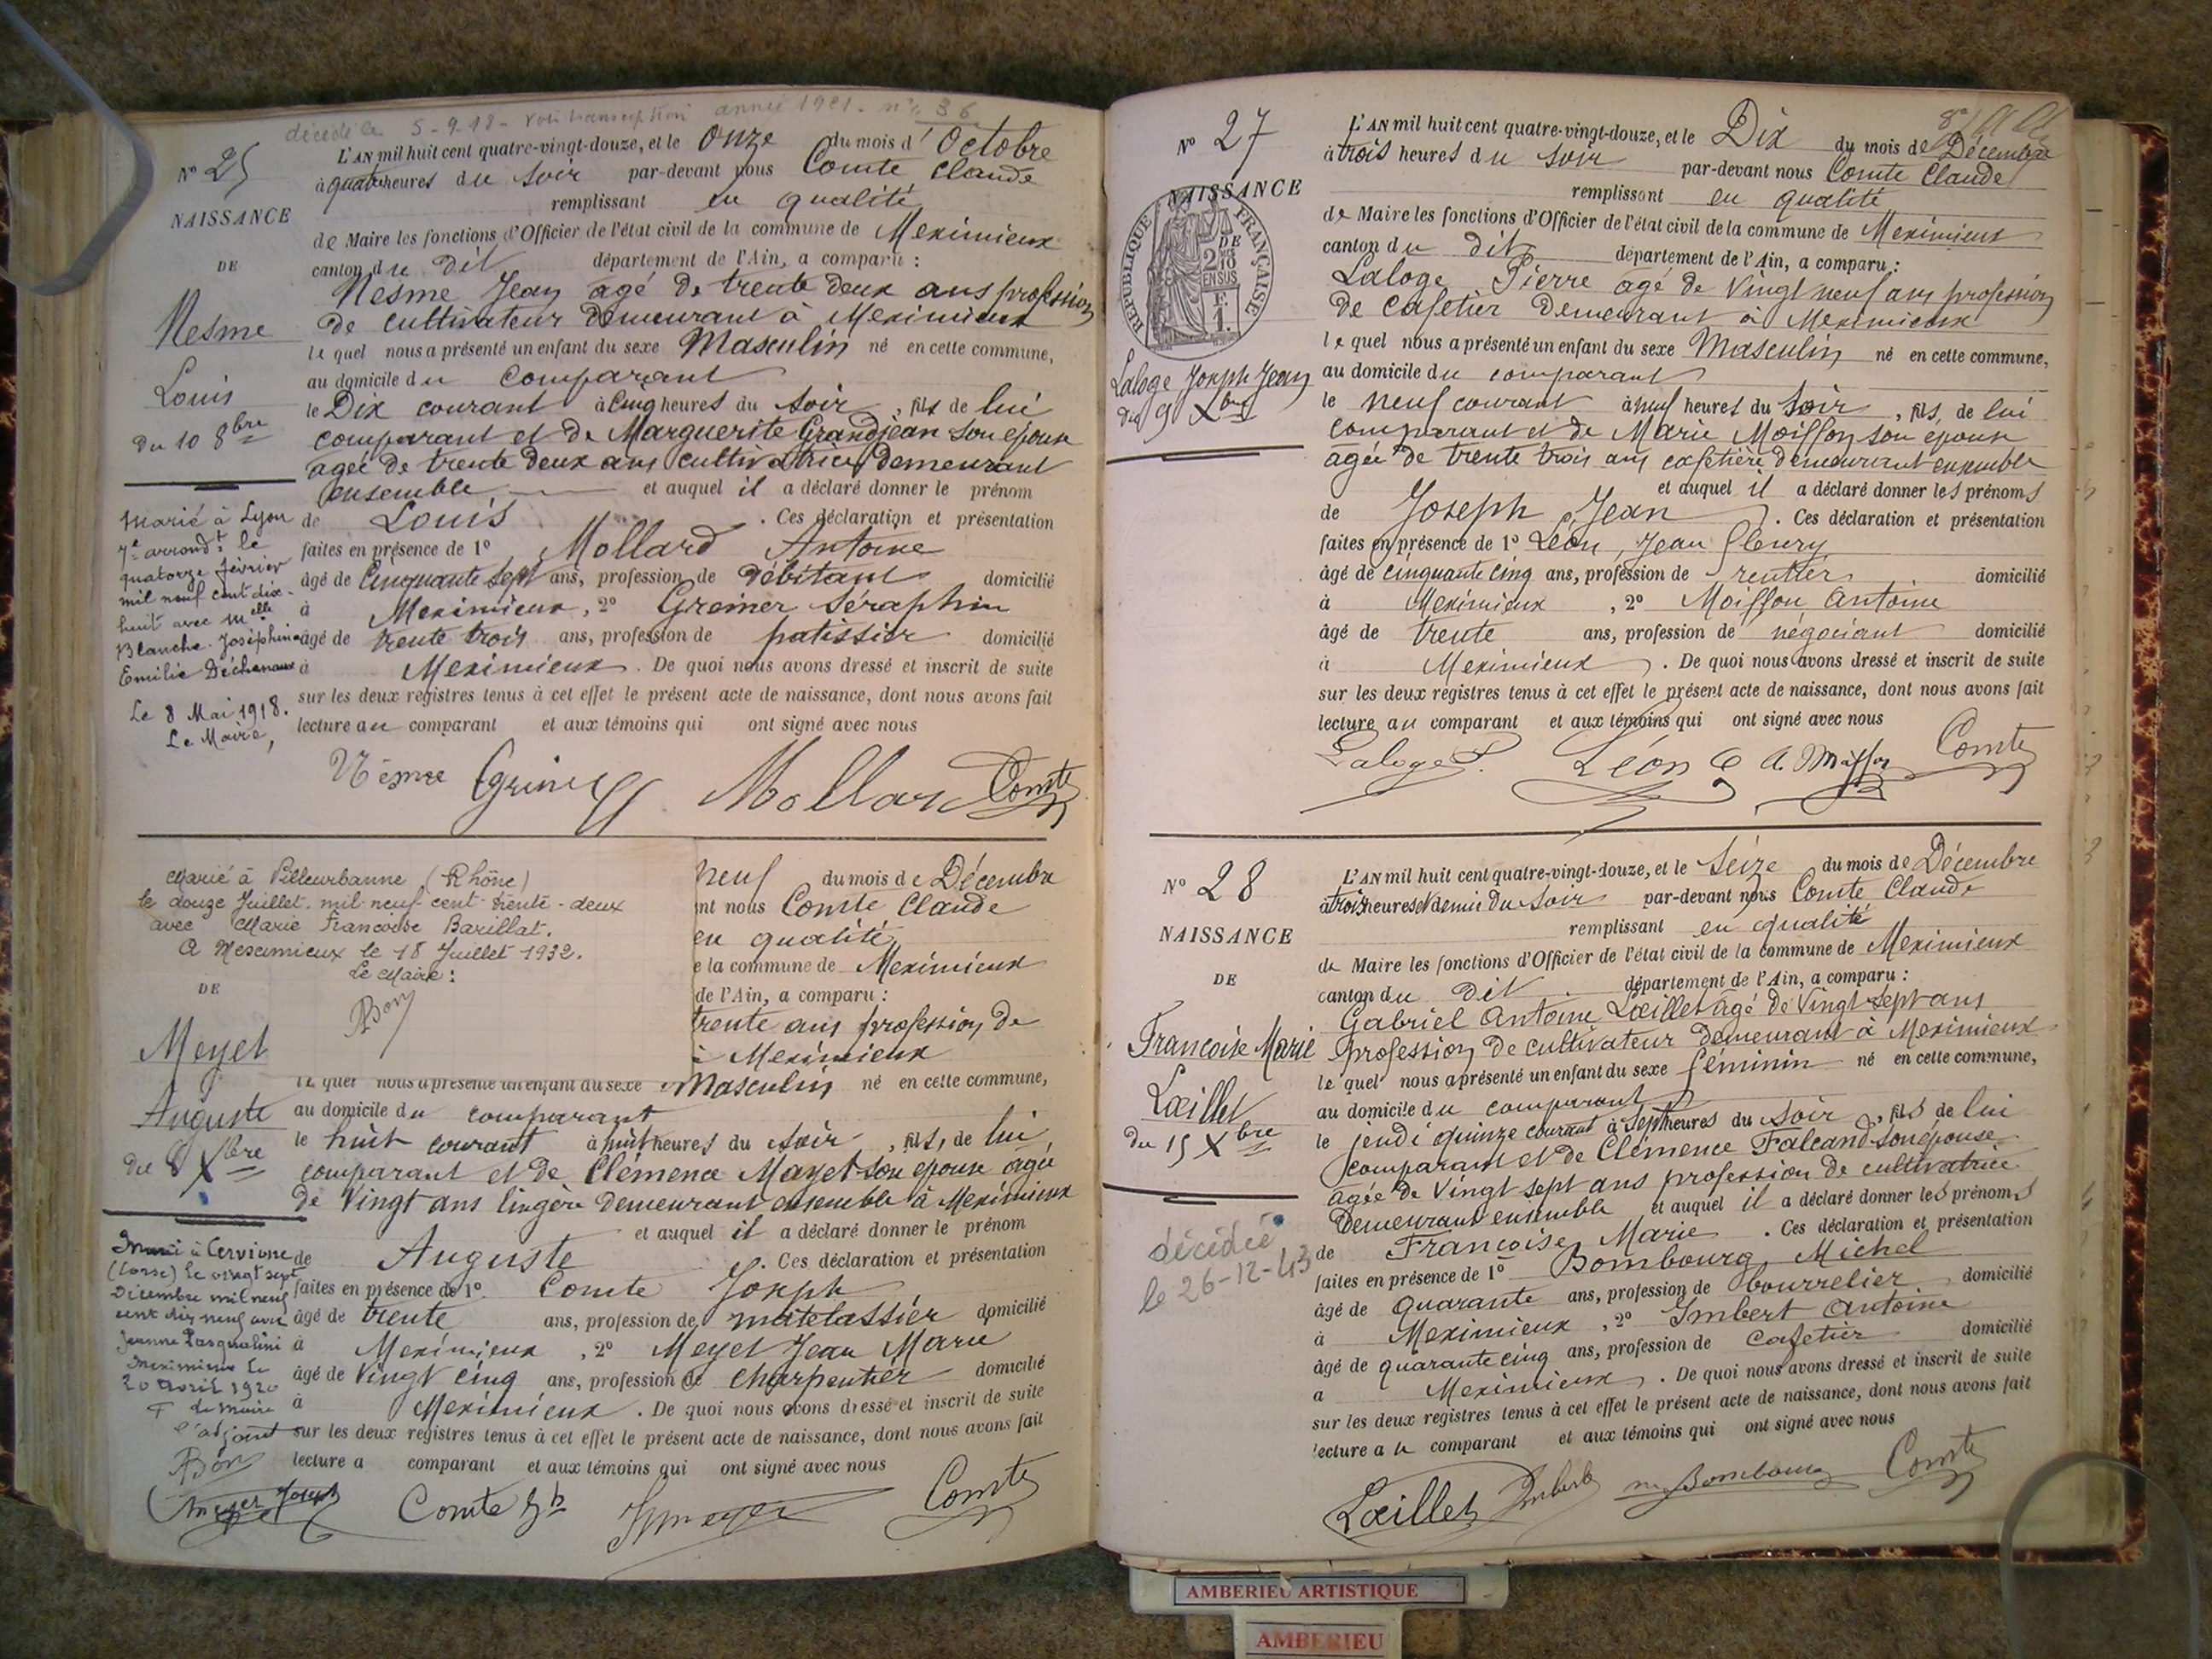 décédé le 5-9-18 - Voir transcription année 1921. n° 36
N° 25
NAISSANCE
DE
Nesme
Louis
du 10 8bre
Marié à Lyon
7e arrondt le
quatorze février
mil neuf cent dix-
huit avec Melle
Blanche Joséphine
Emilie Déchenaux
Le 8 Mai 1918.
Le Maire,
L'AN mil huit cent quatre-vingt-douze, et le Onze du mois d'Octobre
à quatre heures du soir par-devant nous Comte Claude
remplissant en qualité
de Maire les fonctions d'Officier de l'état civil de la commune de Meximieux
canton du dit département de l'Ain, a comparu :
Nesme Jean agé de trente deux ans profession
de cultivateur Demeurant à Meximieux
lequel nous a présenté un enfant du sexe Masculin né en cette commune,
au domicile du comparant
le Dix courant à Cinq heures du soir, fils de lui
comparant et de Marguerite Grandjean son épouse
agée de trente deux ans cultivatrice demeurant
ensemble et auquel il a déclaré donner le prénom
de Louis . Ces déclaration et présentation
faites en présence de 1° Mollard Antoine
âgé de Cinquante sept ans, profession de débitant domicilié
à Meximieux, 2° Greiner Séraphin
âgé de trente trois ans, profession de patissier domicilié
à Meximieux. De quoi nous avons dressé et inscrit de suite
sur les deux registres tenus à cet effet le présent acte de naissance, dont nous avons fait
lecture au comparant et aux témoins qui ont signé avec nous
Nesme Mollard Comte
Marié à Villeurbanne (Rhône)
le douze Juillet mil neuf cent trente-deux
avec Marie Françoise Barillat.
A Meximieux le 18 Juillet 1932.
Le Maire :
Bon
DE
Meyet
Auguste
du 8 Xbre
Marié à Cervione
(Corse) le vingt sept
Décembre mil neuf
cent dix neuf avec
Jeanne Pasqualini
Meximieux le
20 avril 1920
P. le Maire
l'adjoint
Bon
neuf du mois de Décembre
nt nous Comte Claude
en qualité
e la commune de Meximieux
de l'Ain, a comparu :
trente ans profession de
à Meximieux
lequel nous a présenté un enfant du sexe Masculin né en cette commune,
au domicile du comparant
le huit courant à huit heures du soir, fils, de lui
comparant et de Clémence Mayet son épouse agée
de Vingt ans lingère demeurant ensemble à Meximieux
et auquel il a déclaré donner le prénom
de Auguste . Ces déclaration et présentation
faites en présence de 1° Comte Joseph
âgé de trente ans, profession de matelassier domicilié
à Meximieux, 2° Meyet Jean Marie
âgé de Vingt cinq ans, profession de Charpentier domicilié
à Meximieux. De quoi nous avons dressé et inscrit de suite
sur les deux registres tenus à cet effet le présent acte de naissance, dont nous avons fait
lecture a comparant et aux témoins qui ont signé avec nous
Comte Jh Comte
N° 27
NAISSANCE
REPUBLIQUE FRANÇAISE
2/10
EN SUS
1 F.
Laloge Joseph Jean
du 9 Xbre
L'AN mil huit cent quatre-vingt-douze, et le Dix du mois de Décembre
à trois heures du soir par-devant nous Comte Claude
remplissant en qualité
de Maire les fonctions d'Officier de l'état civil de la commune de Meximieux
canton du dit département de l'Ain, a comparu :
Laloge Pierre agé de Vingt neuf ans profession
de cafetier Demeurant à Meximieux
lequel nous a présenté un enfant du sexe Masculin né en cette commune,
au domicile du comparant
le neuf courant à neuf heures du soir, fils, de lui
comparant et de Marie Moiffon son épouse
agée de trente trois ans cafetière demeurant ensemble
et auquel il a déclaré donner les prénoms
de Joseph Jean . Ces déclaration et présentation
faites en présence de 1° Léon, Jean Fleury
âgé de cinquante cinq ans, profession de rentier domicilié
à Meximieux, 2° Moiffon Antoine
âgé de trente ans, profession de négociant domicilié
à Meximieux. De quoi nous avons dressé et inscrit de suite
sur les deux registres tenus à cet effet le présent acte de naissance, dont nous avons fait
lecture au comparant et aux témoins qui ont signé avec nous
Laloge P. Léon A. Moiffon Comte
N° 28
NAISSANCE
DE
Françoise Marie
Lœillet
du 15 Xbre
décédée
le 26-12-43
L'AN mil huit cent quatre-vingt-douze, et le Seize du mois de Décembre
à trois heures et demie du soir par-devant nous Comte Claude
remplissant en qualité
de Maire les fonctions d'Officier de l'état civil de la commune de Meximieux
canton du dit département de l'Ain, a comparu :
Gabriel Antoine Lœillet agé de Vingt sept ans
profession de cultivateur demeurant à Meximieux
lequel nous a présenté un enfant du sexe féminin né en cette commune,
au domicile du comparant
le jeudi quinze courant à sept heures du soir, fils de lui
comparant et de Clémence Falcand son épouse
agée de Vingt sept ans profession de cultivatrice
Demeurant ensemble et auquel il a déclaré donner les prénoms
de Françoise Marie . Ces déclaration et présentation
faites en présence de 1° Bombourg Michel
âgé de quarante ans, profession de bourrelier domicilié
à Meximieux, 2° Imbert Antoine
âgé de quarante cinq ans, profession de cafetier domicilié
a Meximieux. De quoi nous avons dressé et inscrit de suite
sur les deux registres tenus à cet effet le présent acte de naissance, dont nous avons fait
lecture au comparant et aux témoins qui ont signé avec nous
Lœillet Imbert m. Bombourg Comte
AMBERIEU ARTISTIQUE
AMBERIEU